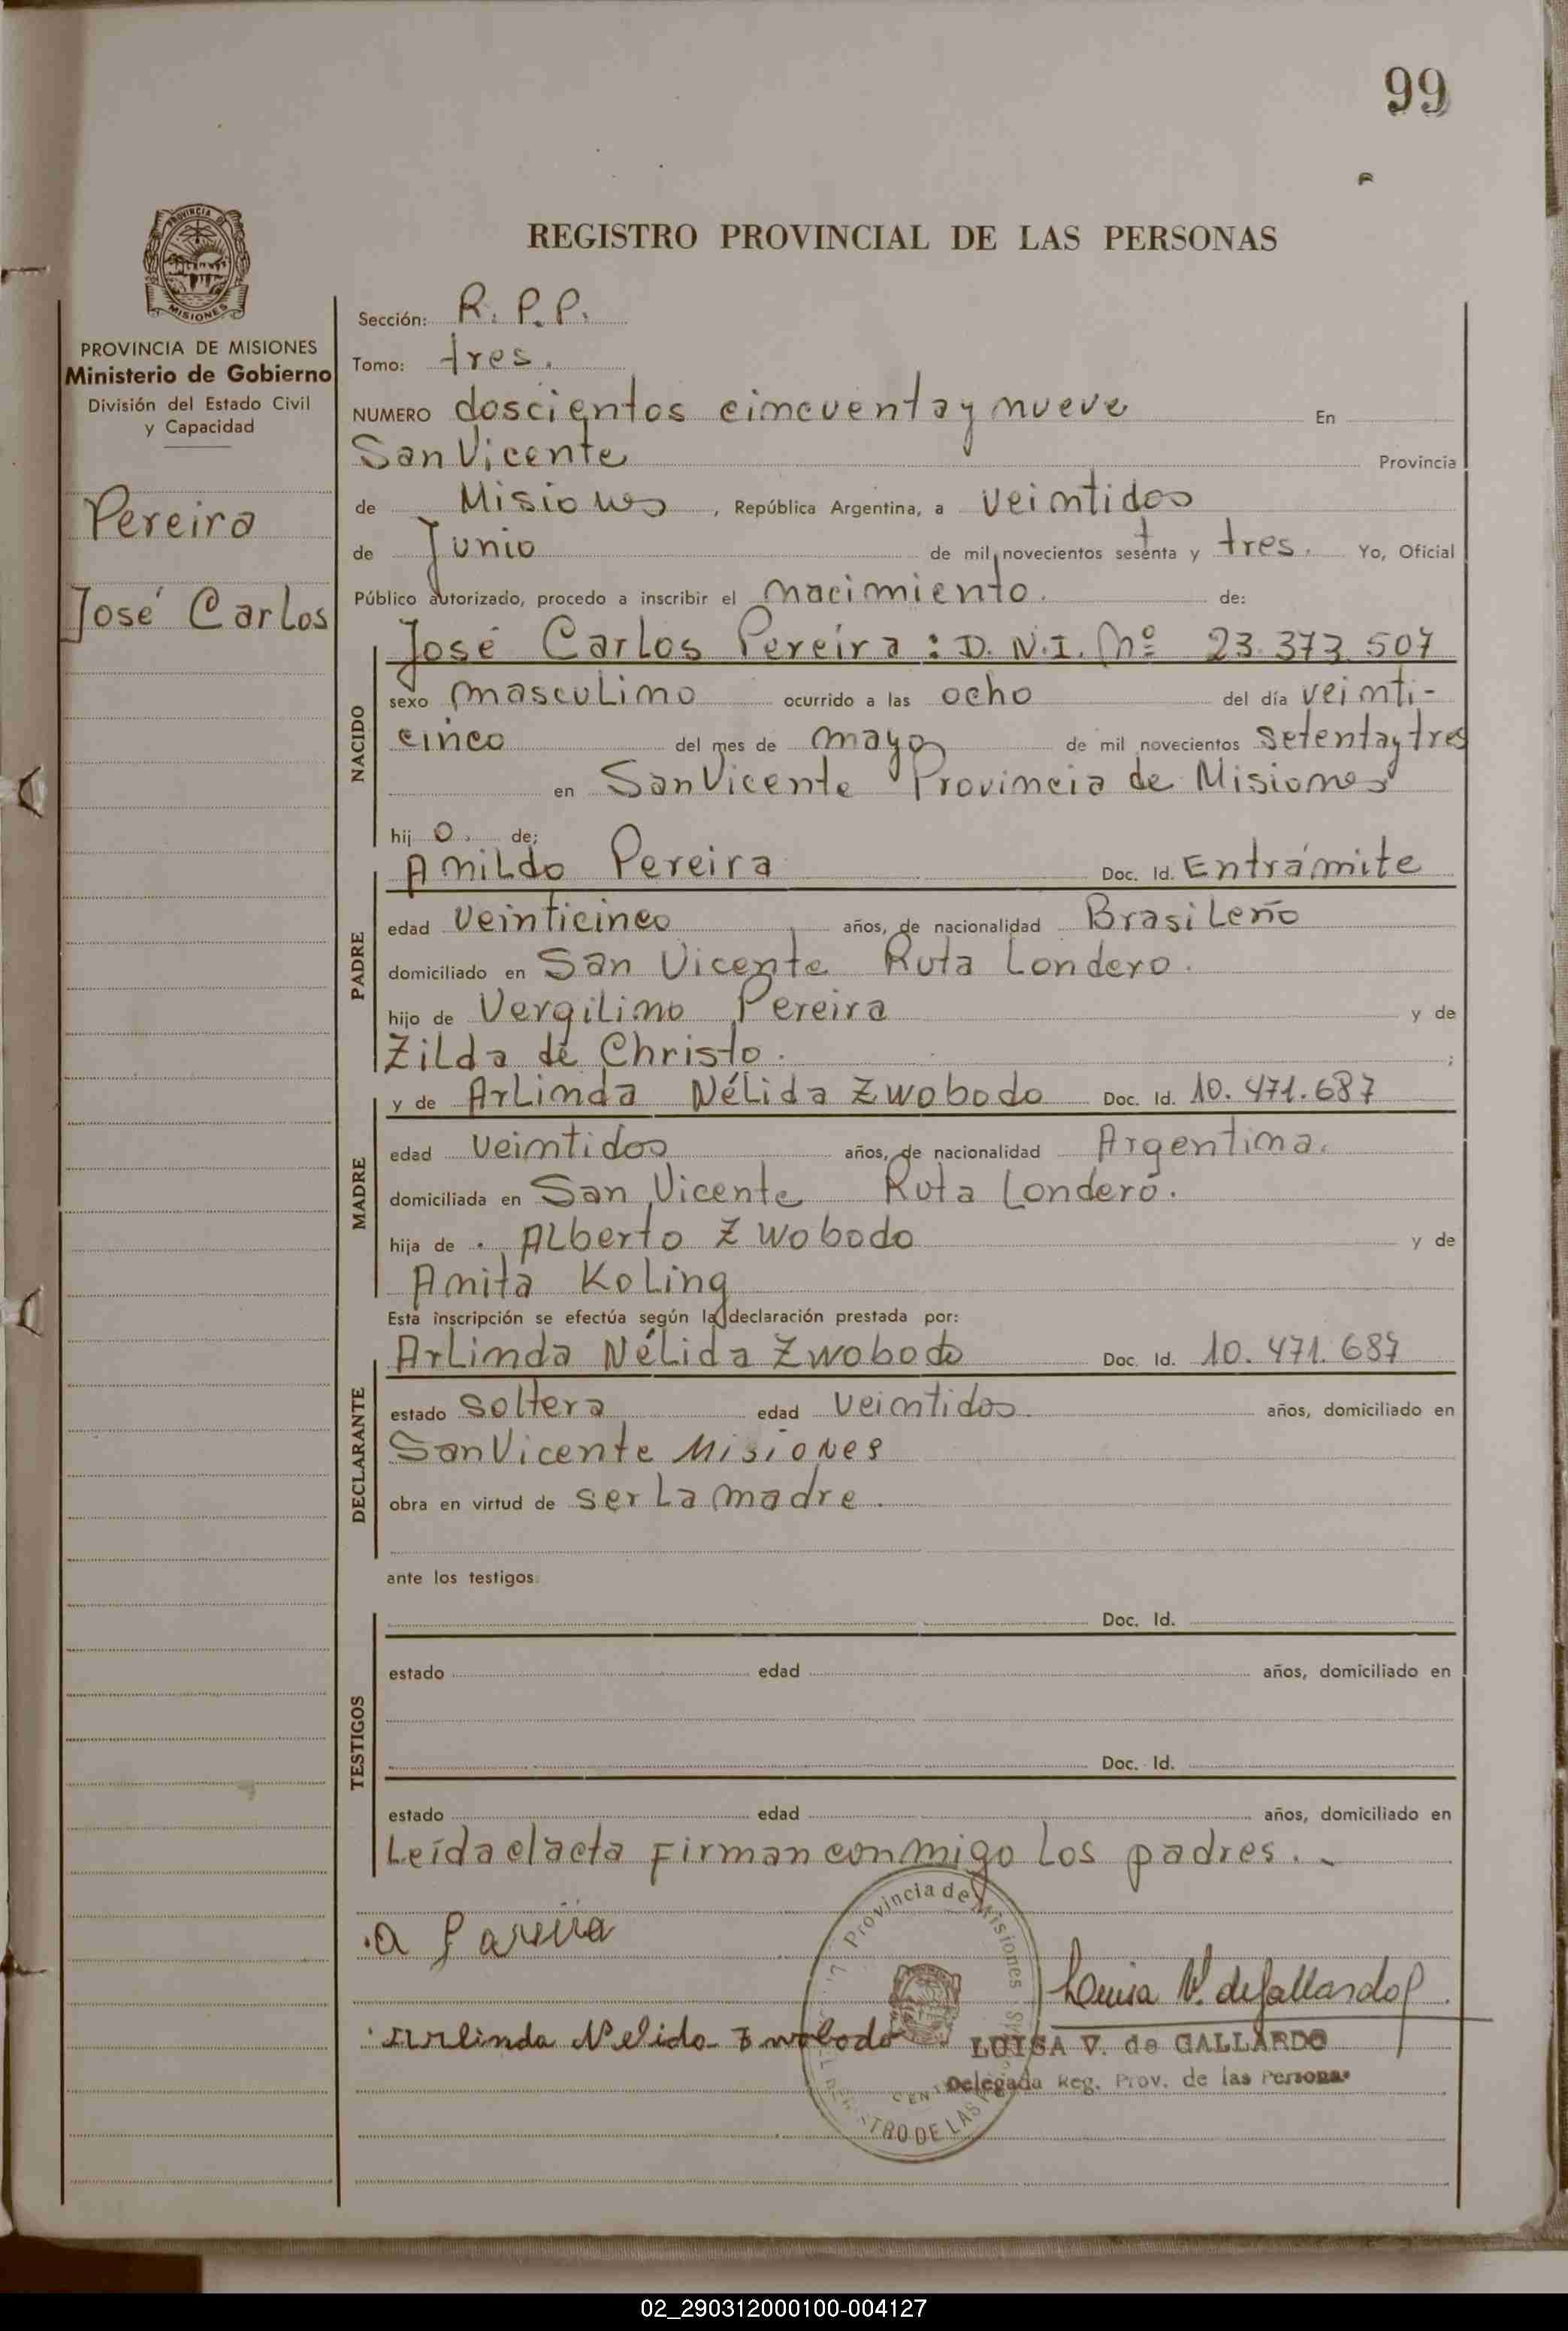 99
REGISTRO PROVINCIAL DE LAS PERSONAS
PROVINCIA
MISIONES
PROVINCIA DE MISIONES
Ministerio de Gobierno
División del Estado Civil
y Capacidad
Pereira
José Carlos
Sección: R. P. P.
Tomo: tres.
NUMERO doscientos cincuenta y nueve En
San Vicente Provincia
de Misiones, República Argentina, a veintidos
de Junio de mil novecientos sesenta y tres. Yo, Oficial
Público autorizado, procedo a inscribir el nacimiento. de:
NACIDO
José Carlos Pereira : D. N. I. Nº 23.373.507
sexo masculino ocurrido a las ocho del día veinti-
cinco del mes de mayo de mil novecientos setenta y tres
en San Vicente Provincia de Misiones
hij o. de;
PADRE
Anildo Pereira Doc. Id. En trámite
edad veinticinco años, de nacionalidad Brasileño
domiciliado en San Vicente Ruta Londero.
hijo de Vergilino Pereira y de
Zilda de Christo. ;
MADRE
y de Arlinda Nélida Zwobodo Doc. Id. 10.471.687
edad veintidos años, de nacionalidad Argentina.
domiciliada en San Vicente Ruta Londero.
hija de . Alberto Zwobodo y de
Anita Koling
Esta inscripción se efectúa según la declaración prestada por:
DECLARANTE
Arlinda Nélida Zwobodo Doc. Id. 10.471.687
estado soltera edad veintidos. años, domiciliado en
San Vicente Misiones
obra en virtud de ser la madre.
ante los testigos:
TESTIGOS
Doc. Id.
estado edad años, domiciliado en
Doc. Id.
estado edad años, domiciliado en
Leída el acta firman conmigo los padres. -
Provincia de Misiones
A Pareira
Luisa V. de Gallardo
Arlinda Nelida Zwobodo
LUISA V. de GALLARDO
Delegada Reg. Prov. de las Personas
REGISTRO DE LAS
02_290312000100-004127